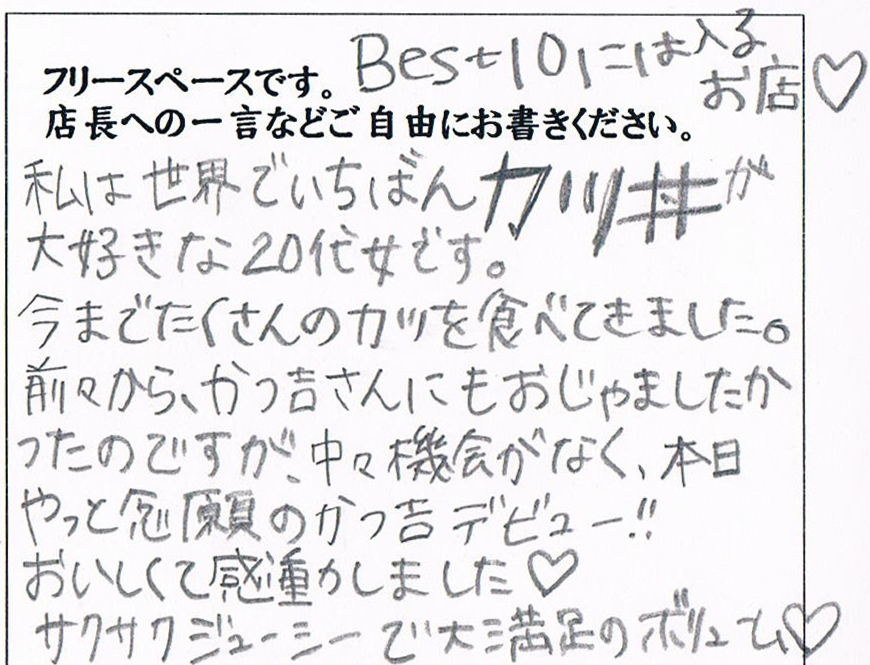 Best10には入る
お店♡
フリースペースです。
店長への一言などご自由にお書きください。
私は世界でいちばんカツ丼が
大好きな20代女です。
今までたくさんのカツを食べてきました。
前々から、かつ吉さんにもおじゃましたか
ったのですが、中々機会がなく、本日
やっと念願のかつ吉デビュー!!
おいしくて感動しました♡
サクサクジューシーで大満足のボリューム♡